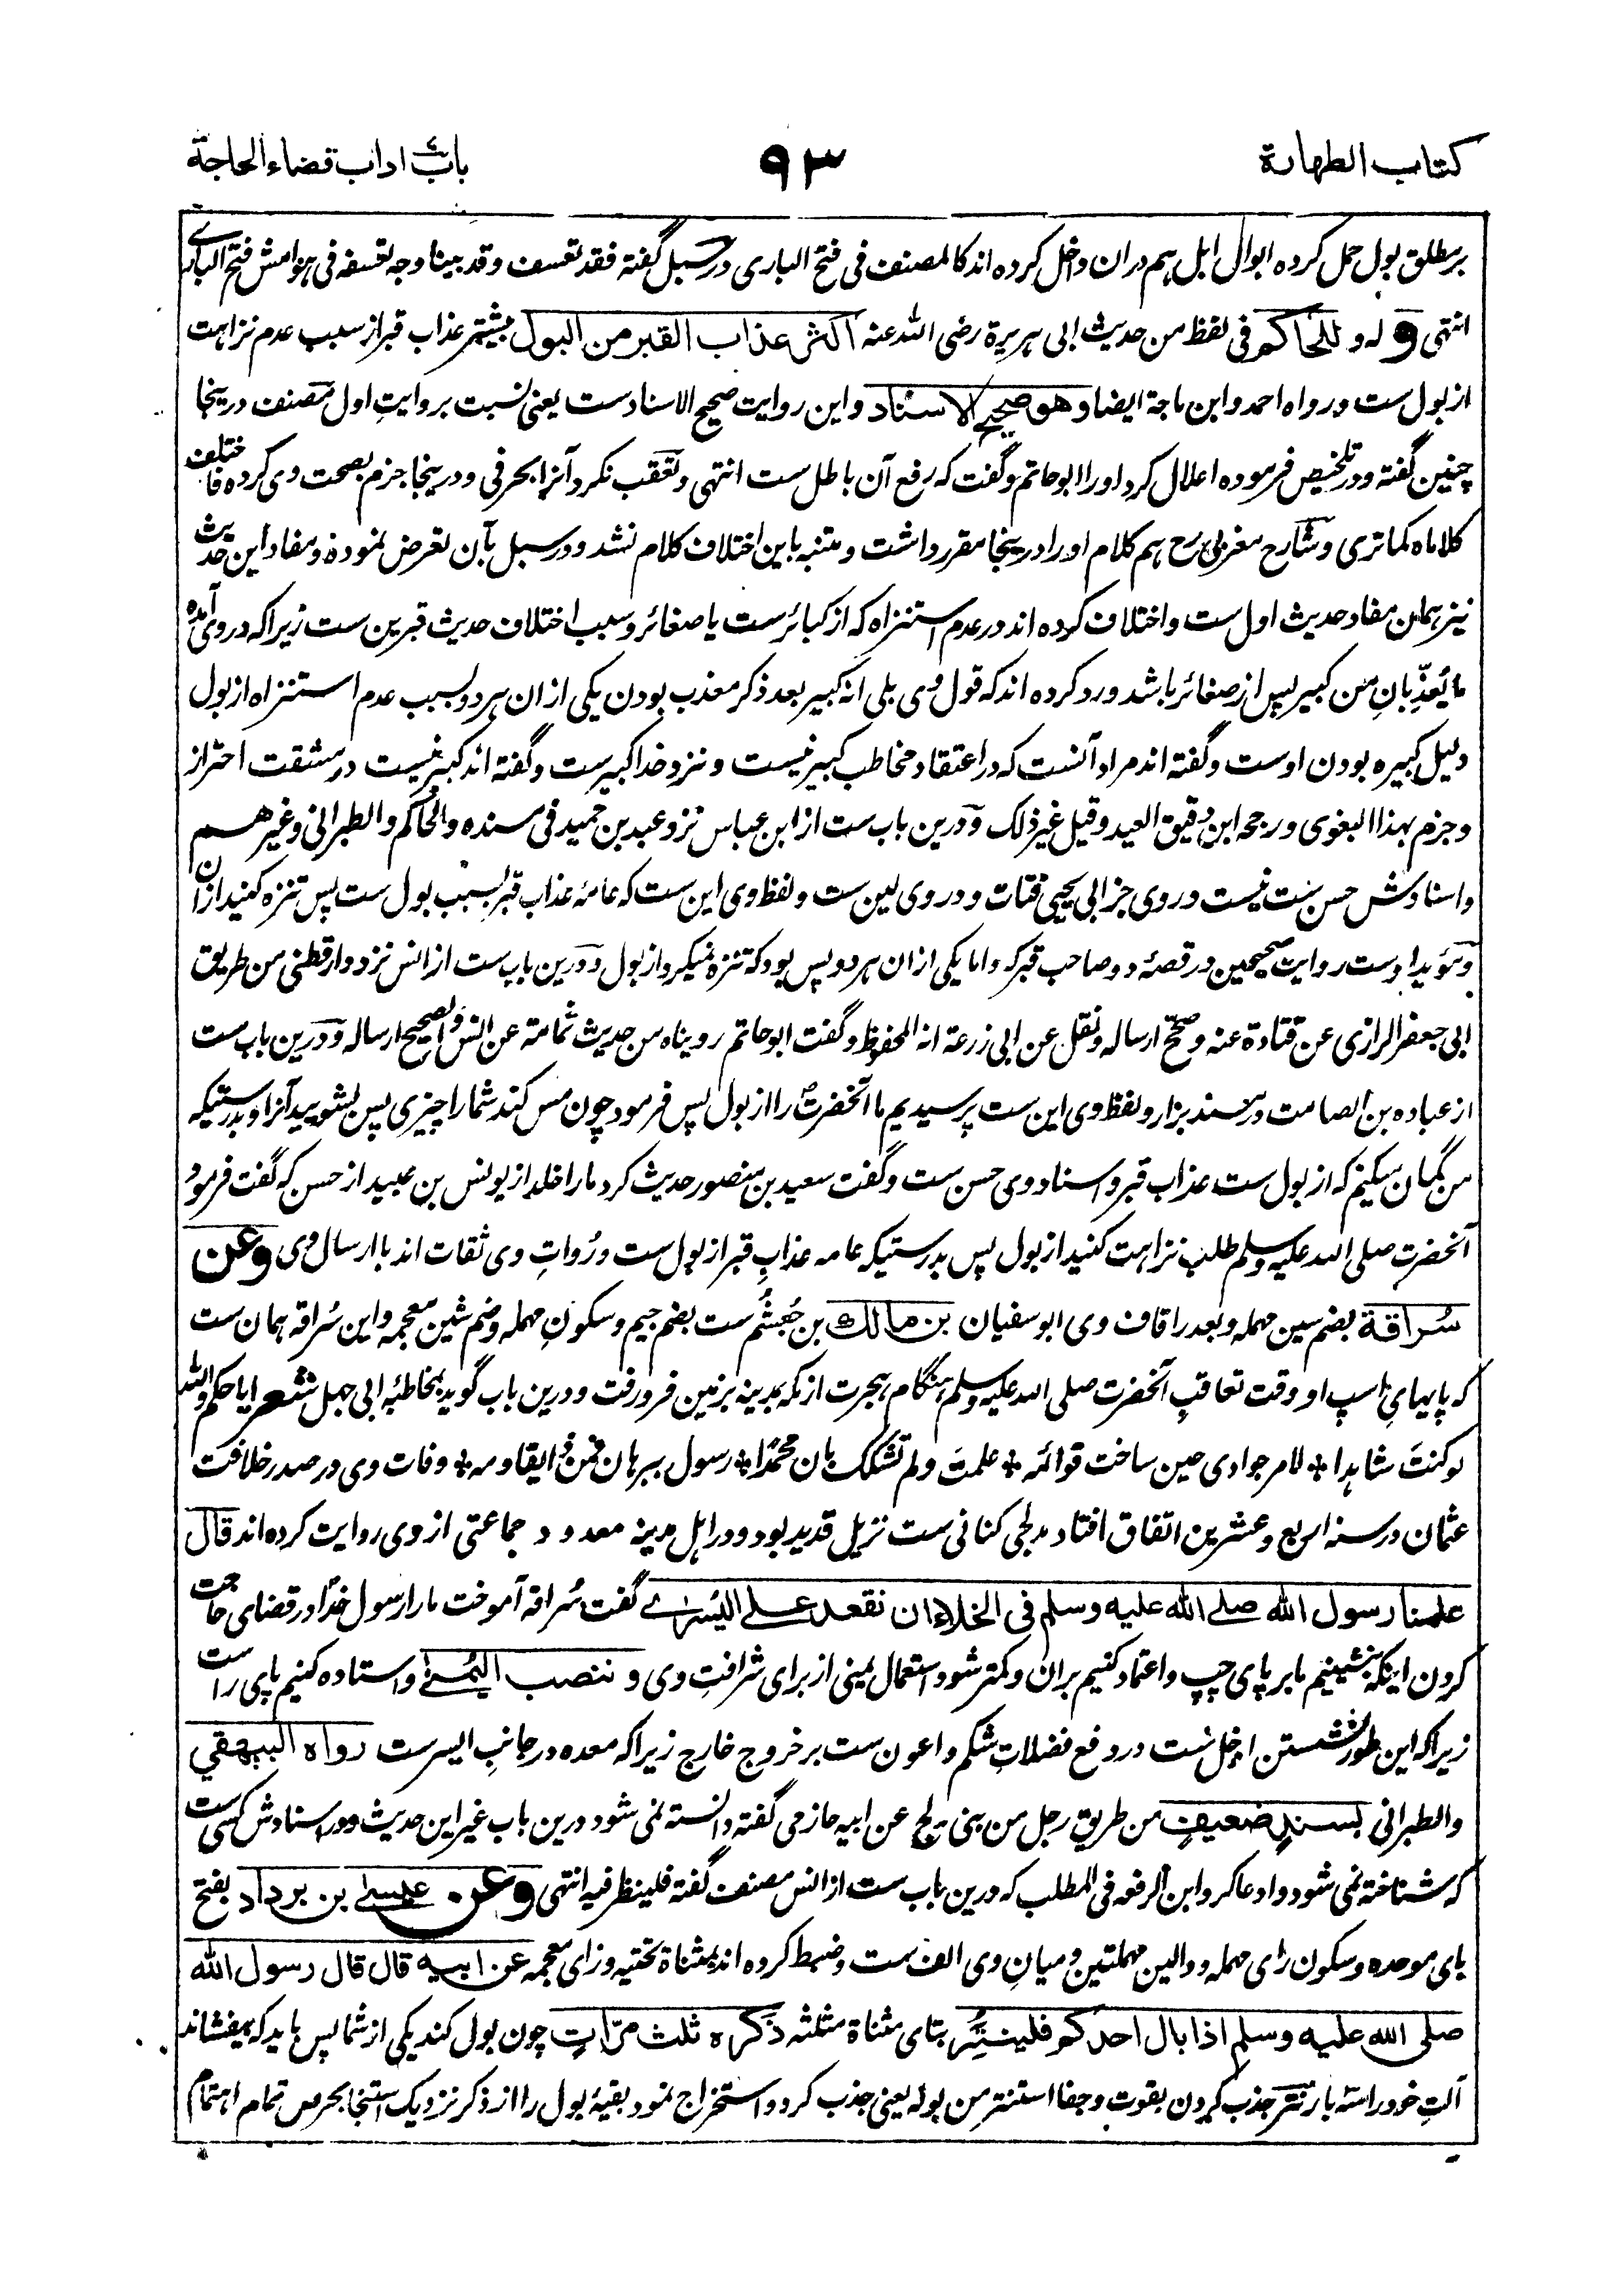 کتاب الطهارة
۹۳
باب اداب قضاء الحاجة
بر مطلق بول حمل کرده ابوال ابل هم دران داخل کرده اند کالمصنف فی فتح الباری در سبل گفته فقد تعسف و قد بینا وجه تعسفه فی هوامش فتح الباری
انتهی وله و للحاکم فی لفظ من حدیث ابی هریرة رضی الله عنه اکثر عذاب القبر من البول بیشتر عذاب قبر از سبب عدم نزاهت
از بول ست و رواه احمد و ابن ماجة ایضا و هو صحیح الاسناد و این روایت صحیح الاسنادست یعنی نسبت بروایتِ اول مصنف درینجا
چنین گفته و در تلخیص فرموده اعلال کرد اورا ابوحاتم و گفت که رفع آن باطل ست انتهی و تعقب نکرد آنرا بحرفی و درینجا جزم بصحت وی کرده فاختلف
کلاماه کما تری و شارح مغربی رح هم کلام اورا درینجا مقرر داشت و متنبه باین اختلاف کلام نشد و در سبل بآن تعرض نموده و مفاد این حدیث
نیز همان مفاد حدیث اول ست و اختلاف کرده اند در عدم استنزاه که از کبائرست یا صغائر و سبب اختلاف حدیث قبرین ست زیراکه در وی آمده
ما یُعذّبانِ من کبیر پس از صغائر باشد و رد کرده اند که قول وی بلی انه کبیر بعد ذکر معذب بودن یکی ازان هر دو بسبب عدم استنزاه از بول
دلیل کبیره بودن اوست و گفته اند مراد آنست که در اعتقاد مخاطب کبیر نیست و نزد خدا کبیرست و گفته اند کبیر نیست در مشقت احتراز
و جزم بهذا البغوی و رجحه ابن دقیق العید و قیل غیر ذلک و درین باب ست از ابن عباس نزد عبد بن حمید فی مسنده و الحاکم و الطبرانی و غیرهم
و اسنادش حسن ست نیست در وی جز ابی یحیی قتات و در وی لین ست و لفظ وی این ست که عامهٔ عذاب قبر بسبب بول ست پس تنزه کنید ازان
و مؤید اوست روایت صحیحین در قصهٔ دو صاحب قبر که و اما یکی ازان هر دو پس بود که تنزه نمیکرد از بول و درین باب ست از انس نزد دارقطنی من طریق
ابی جعفر الرازی عن قتادة عنه و صحّح ارساله و نقل عن ابی زرعة انه المحفوظ و گفت ابوحاتم رویناه من حدیث ثمامة عن انس و الصحیح ارساله و درین باب ست
از عباده بن الصامت در مسند بزار و لفظ وی این ست پرسیدیم ما آنحضرتؐ را از بول پس فرمود چون مس کند شما را چیزی پس بشویید آنرا و بدرستیکه
من گمان میکنم که از بول ست عذاب قبر و اسناد وی حسن ست و گفت سعید بن منصور حدیث کرد ما را خلد از یونس بن عبید از حسن که گفت فرمود
آنحضرت صلی الله علیه وسلم طلب نزاهت کنید از بول پس بدرستیکه عامه عذابِ قبر از بول ست و رُواتِ وی ثقات اند با ارسال وی وعن
سُراقة بضم سین مهمله و بعد را قاف وی ابوسفیان بن مالک بن جُعشُم ست بضم جیم و سکونِ مهمله و ضم شین معجمه و این سُراقه همان ست
که پایهای اسپ او وقت تعاقبِ آنحضرت صلی الله علیه وسلم هنگام هجرت از مکه بمدینه بزمین فرو رفت و درین باب گوید بمخاطبهٔ ابی جهل شعر اباحکم والله
لو کنتَ شاهدا * لامر جوادی حین ساخت قوائمه * علمتَ ولم تشکک بان محمدًا * رسول ببرهان فمن ذا یقاومه * وفات وی در صدر خلافت
عثمان در سنه اربع و عشرین اتفاق افتاد مدلجی کنانی ست نزیل قدید بود و در اهل مدینه معدود جماعتی از وی روایت کرده اند قال
علمنا رسول الله صلی الله علیه وسلم فی الخلاء ان نقعد علی الیُسری گفت سُراقه آموخت ما را رسول خداؐ در قضای حاجت
کردن اینکه بنشینیم ما بر پای چپ و اعتماد کنیم بران و کمتر شود استعمال یمنی از برای شرافتِ وی و ننصب الیُمنی و استاده کنیم پای راست
زیراکه این طور نشستن ادخل ست در دفع فضلاتِ شکم و اعون ست بر خروج خارج زیراکه معده در جانبِ ایسرست رواه البیهقی
والطبرانی بسندٍ ضعیفٍ من طریق رجل من بنی مدلج عن ابیه حازمی گفته دانسته نمی شود درین باب غیر این حدیث و در اسنادش کسی ست
که شناخته نمی شود و ادعا کرد ابن الرفعه فی المطلب که درین باب ست از انس مصنف گفته فلینظر فیه انتهی وعن عیسی بن برداد بفتح
بای موحده و سکون رای مهمله و دالین مهملتین و میانِ وی الف ست و ضبط کرده اند بمثناة تحتیه و زای معجمه عن ابیه قال قال رسول الله
صلی الله علیه وسلم اذا بال احدکم فلینتُر بتای مثناة مثلثه ذکره ثلث مرّاتٍ چون بول کند یکی از شما پس باید که بیفشاند
آلتِ خود را سه بار نتر جذب کردن بقوت و جفا استنتر من بوله یعنی جذب کرد و استخراج نمود بقیهٔ بول را از ذکر نزدیک استنجا بحرص تمام اهتمام